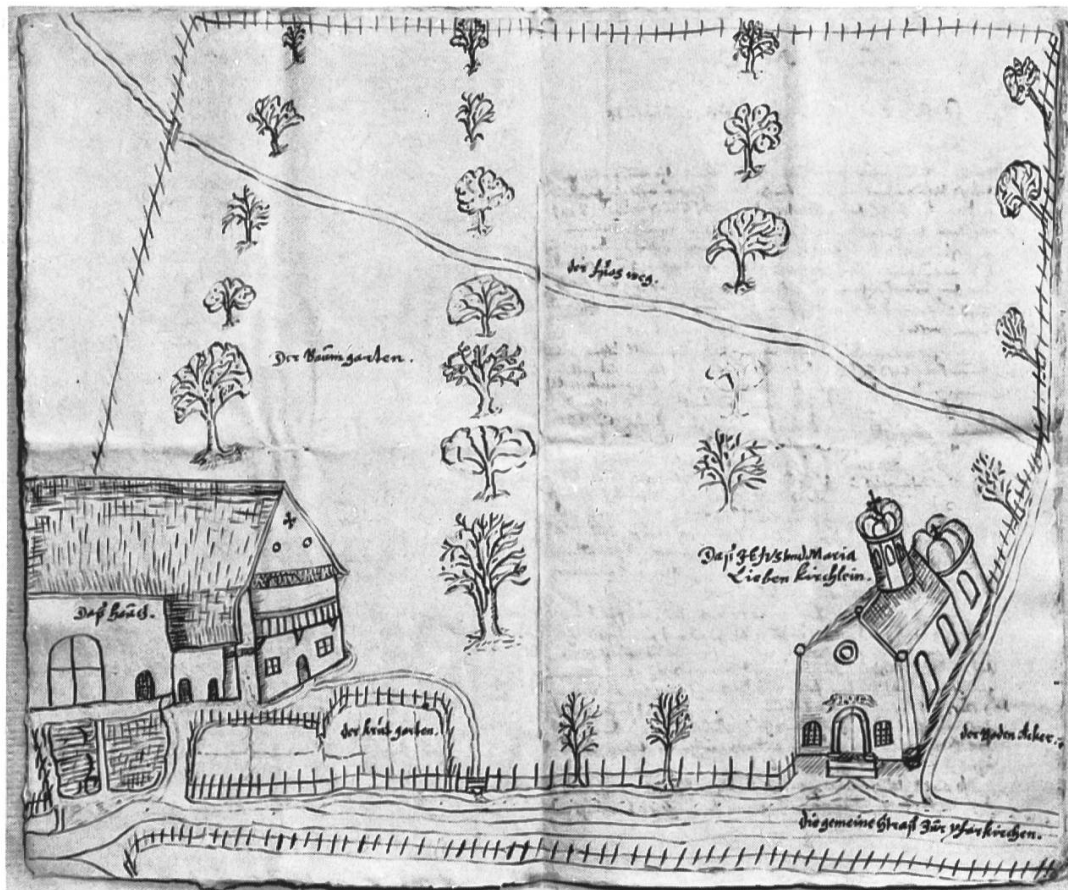 der fuos weg.
Der Baumgarten.
Daß JEsus und Maria
Lieben Kirchlein.
Daß Hauß.
der krut garten.
der Boden Acker.
die gemeine straß zur pfarkirchen.